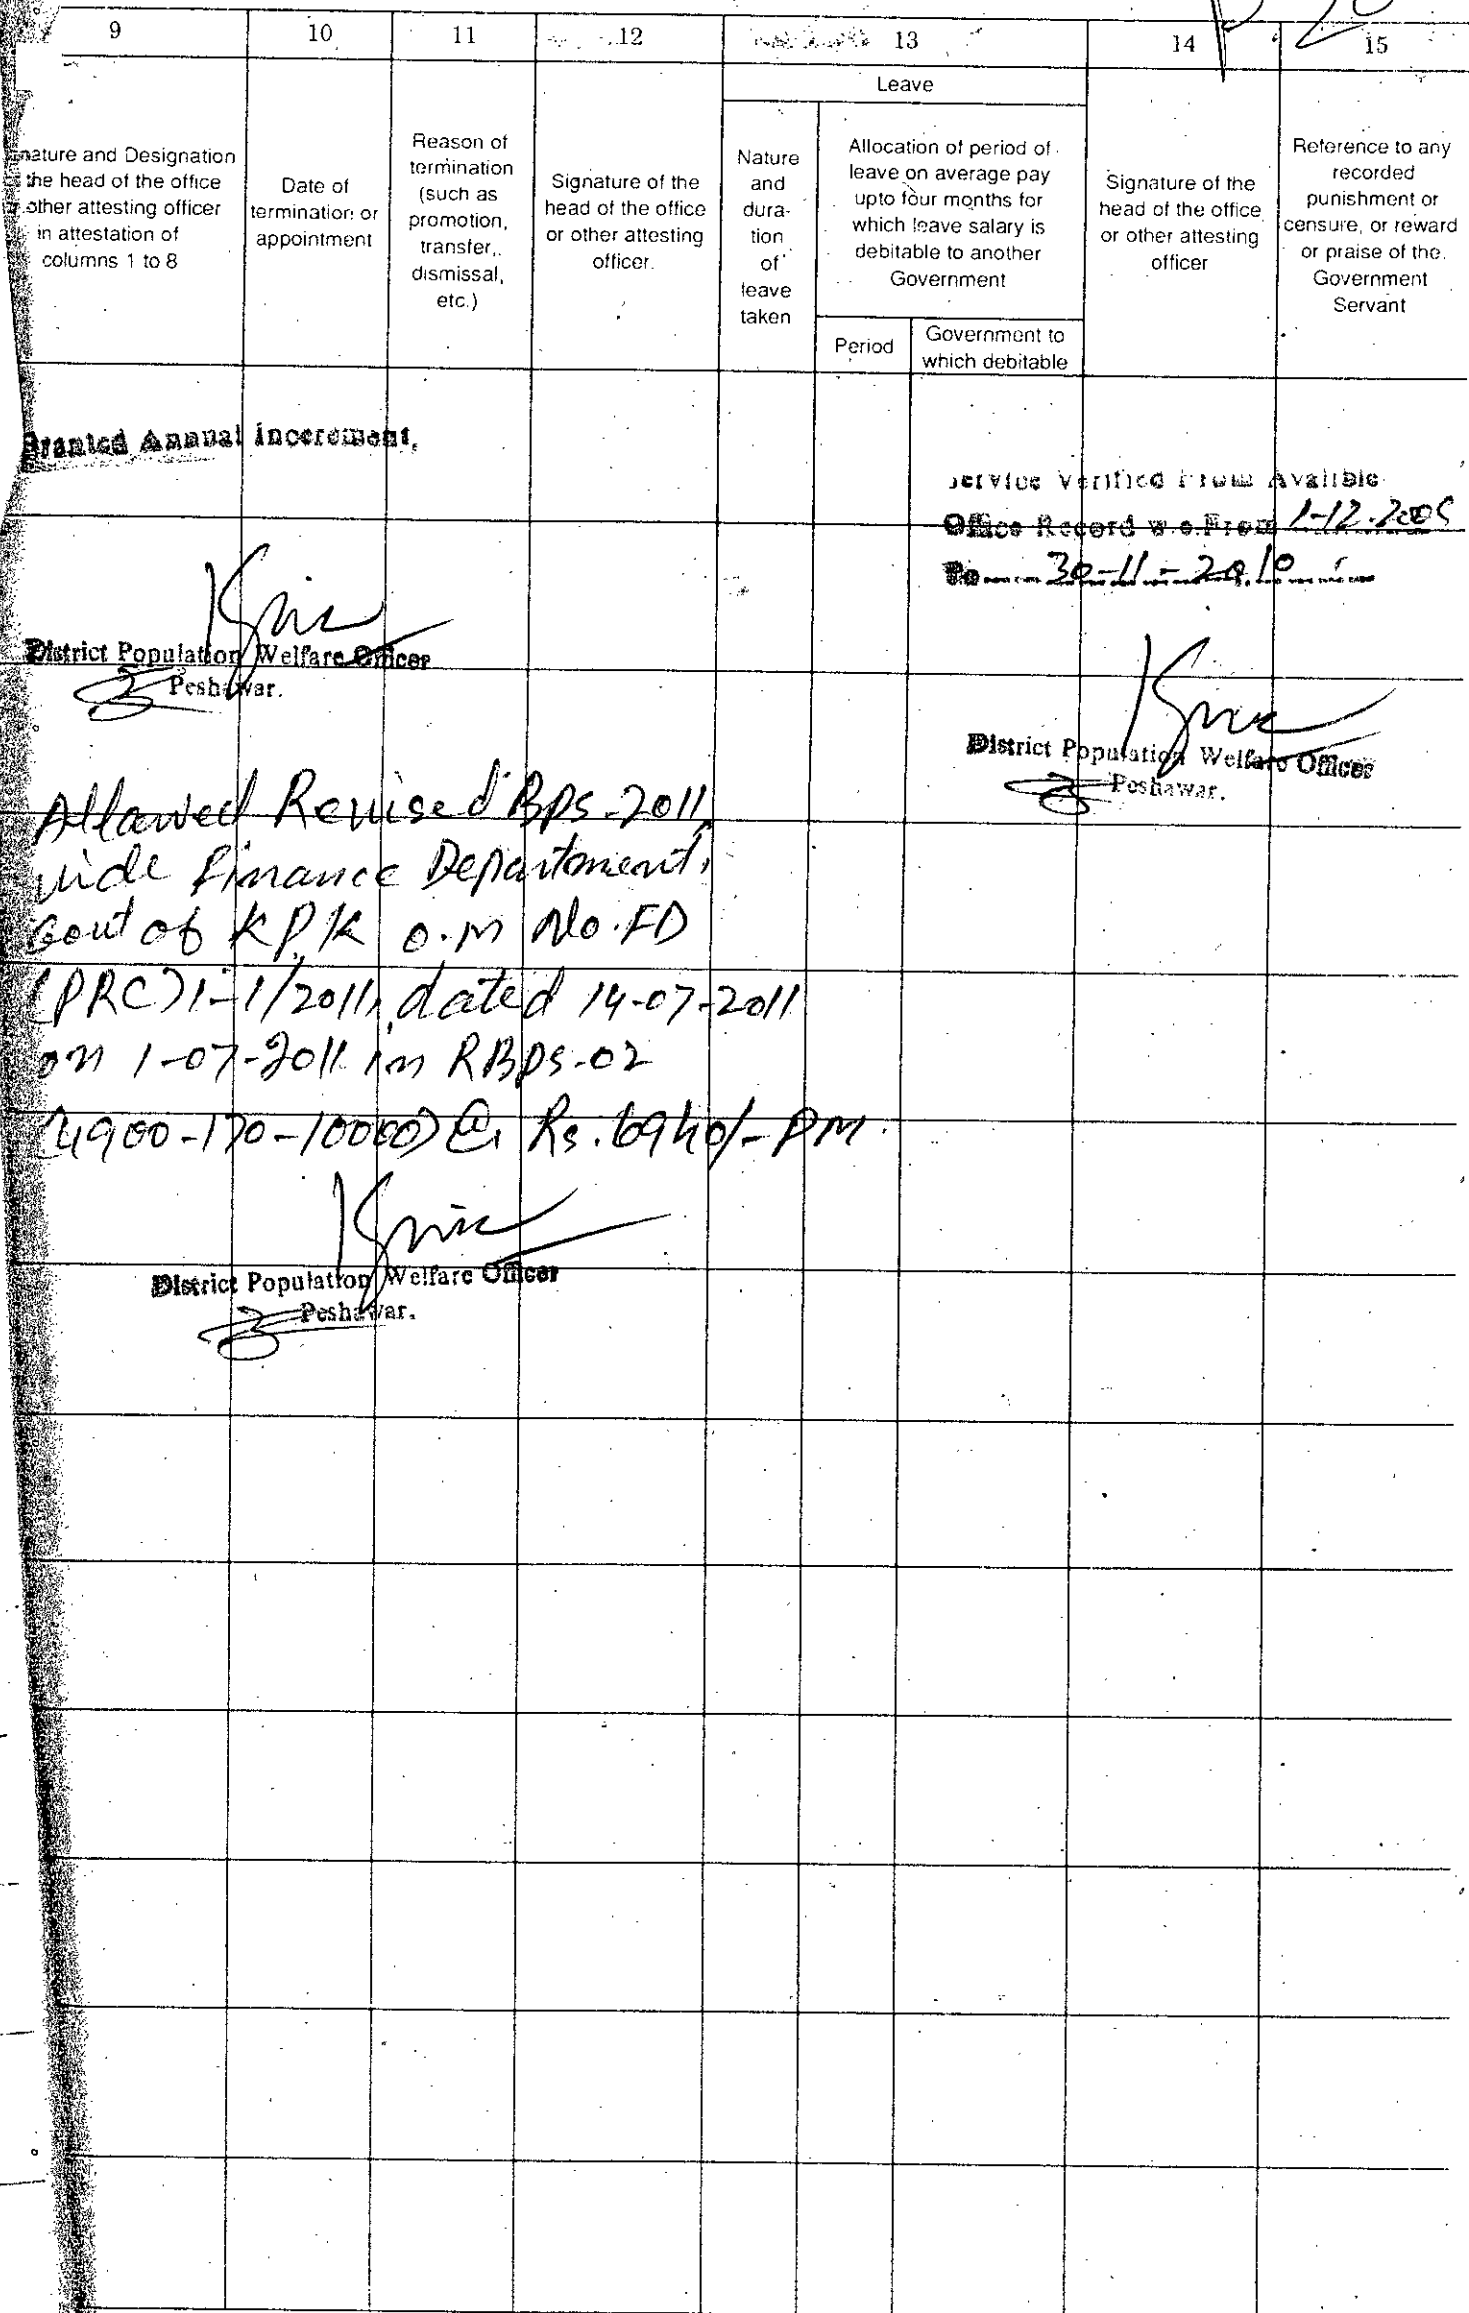 9 10 11 12 13 14 15
Leave
nature and Designation
the head of the office
other attesting officer
in attestation of
columns 1 to 8
Date of
termination or
appointment
Reason of
termination
(such as
promotion,
transfer,
dismissal,
etc.)
Signature of the
head of the office
or other attesting
officer.
Nature
and
dura-
tion
of
leave
taken
Allocation of period of
leave on average pay
upto four months for
which leave salary is
debitable to another
Government
Period
Government to
which debitable
Signature of the
head of the office
or other attesting
officer
Reference to any
recorded
punishment or
censure, or reward
or praise of the
Government
Servant
Granted Annual incerement,
District Population Welfare Officer
Peshawar.
Service Verified From Avalible
Office Record w.e.From 1-12-2005
To 30-11-2010
District Population Welfare Officer
Peshawar.
Allowed Revised BPS-2011
vide Finance Department,
Govt of KPK O.M No.FD
(PRC)1-1/2011, dated 14-07-2011
on 1-07-2011 in RBPS-02
(4900-170-10000) @ Rs.6940/-PM.
District Population Welfare Officer
Peshawar.